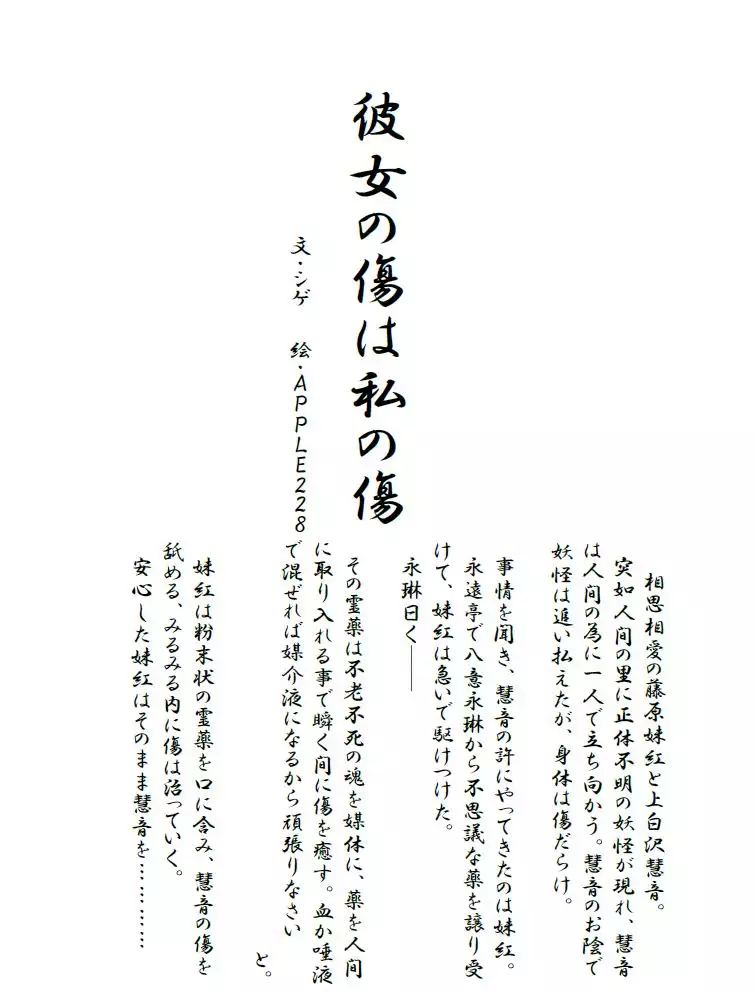 彼女の傷は私の傷
文・シゲ　絵・APPLE228
相思相愛の藤原妹紅と上白沢慧音。
突如人間の里に正体不明の妖怪が現れ、慧音
は人間の為に一人で立ち向かう。慧音のお陰で
妖怪は追い払えたが、身体は傷だらけ。
事情を聞き、慧音の許にやってきたのは妹紅。
永遠亭で八意永琳から不思議な薬を譲り受
けて、妹紅は急いで駆けつけた。
永琳曰く――
その霊薬は不老不死の魂を媒体に、薬を人間
に取り入れる事で瞬く間に傷を癒す。血か唾液
で混ぜれば媒介液になるから頑張りなさい
と。
妹紅は粉末状の霊薬を口に含み、慧音の傷を
舐める、みるみる内に傷は治っていく。
安心した妹紅はそのまま慧音を…………